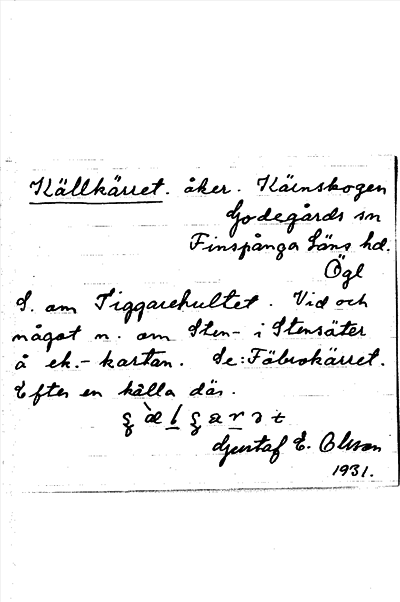 Källkärret. åker. Käinskogen
Godegårds sn
Finspånga Läns hd.
Ögl
S. om Tiggarehultet. Vid och
något n. om Sten- i Stensäter
å ek.-kartan. Se: Fäbrokärret.
Efter en källa där.
Gustaf E. Olsson
1931.